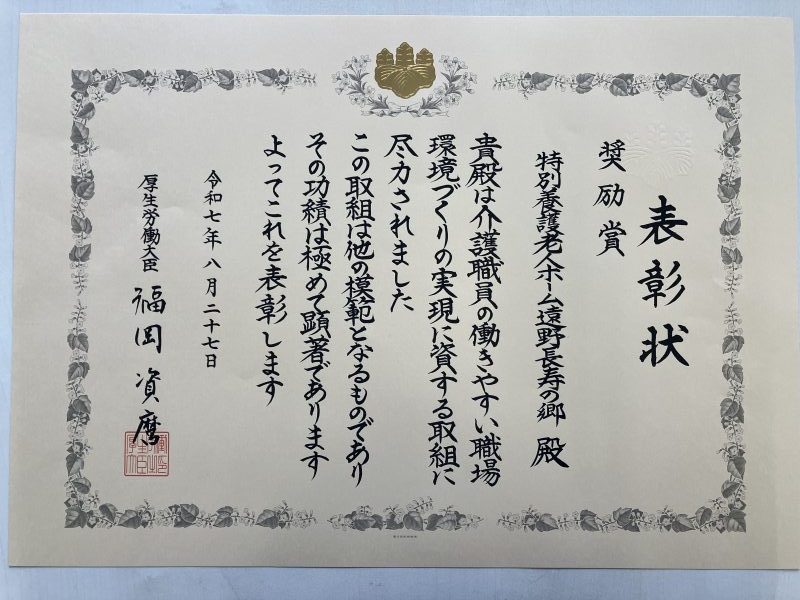 表彰状
奨励賞
特別養護老人ホーム遠野長寿の郷 殿
貴殿は介護職員の働きやすい職場
環境づくりの実現に資する取組に
尽力されました
この取組は他の模範となるものであり
その功績は極めて顕著であります
よってこれを表彰します
令和七年八月二十七日
厚生労働大臣 福岡資麿